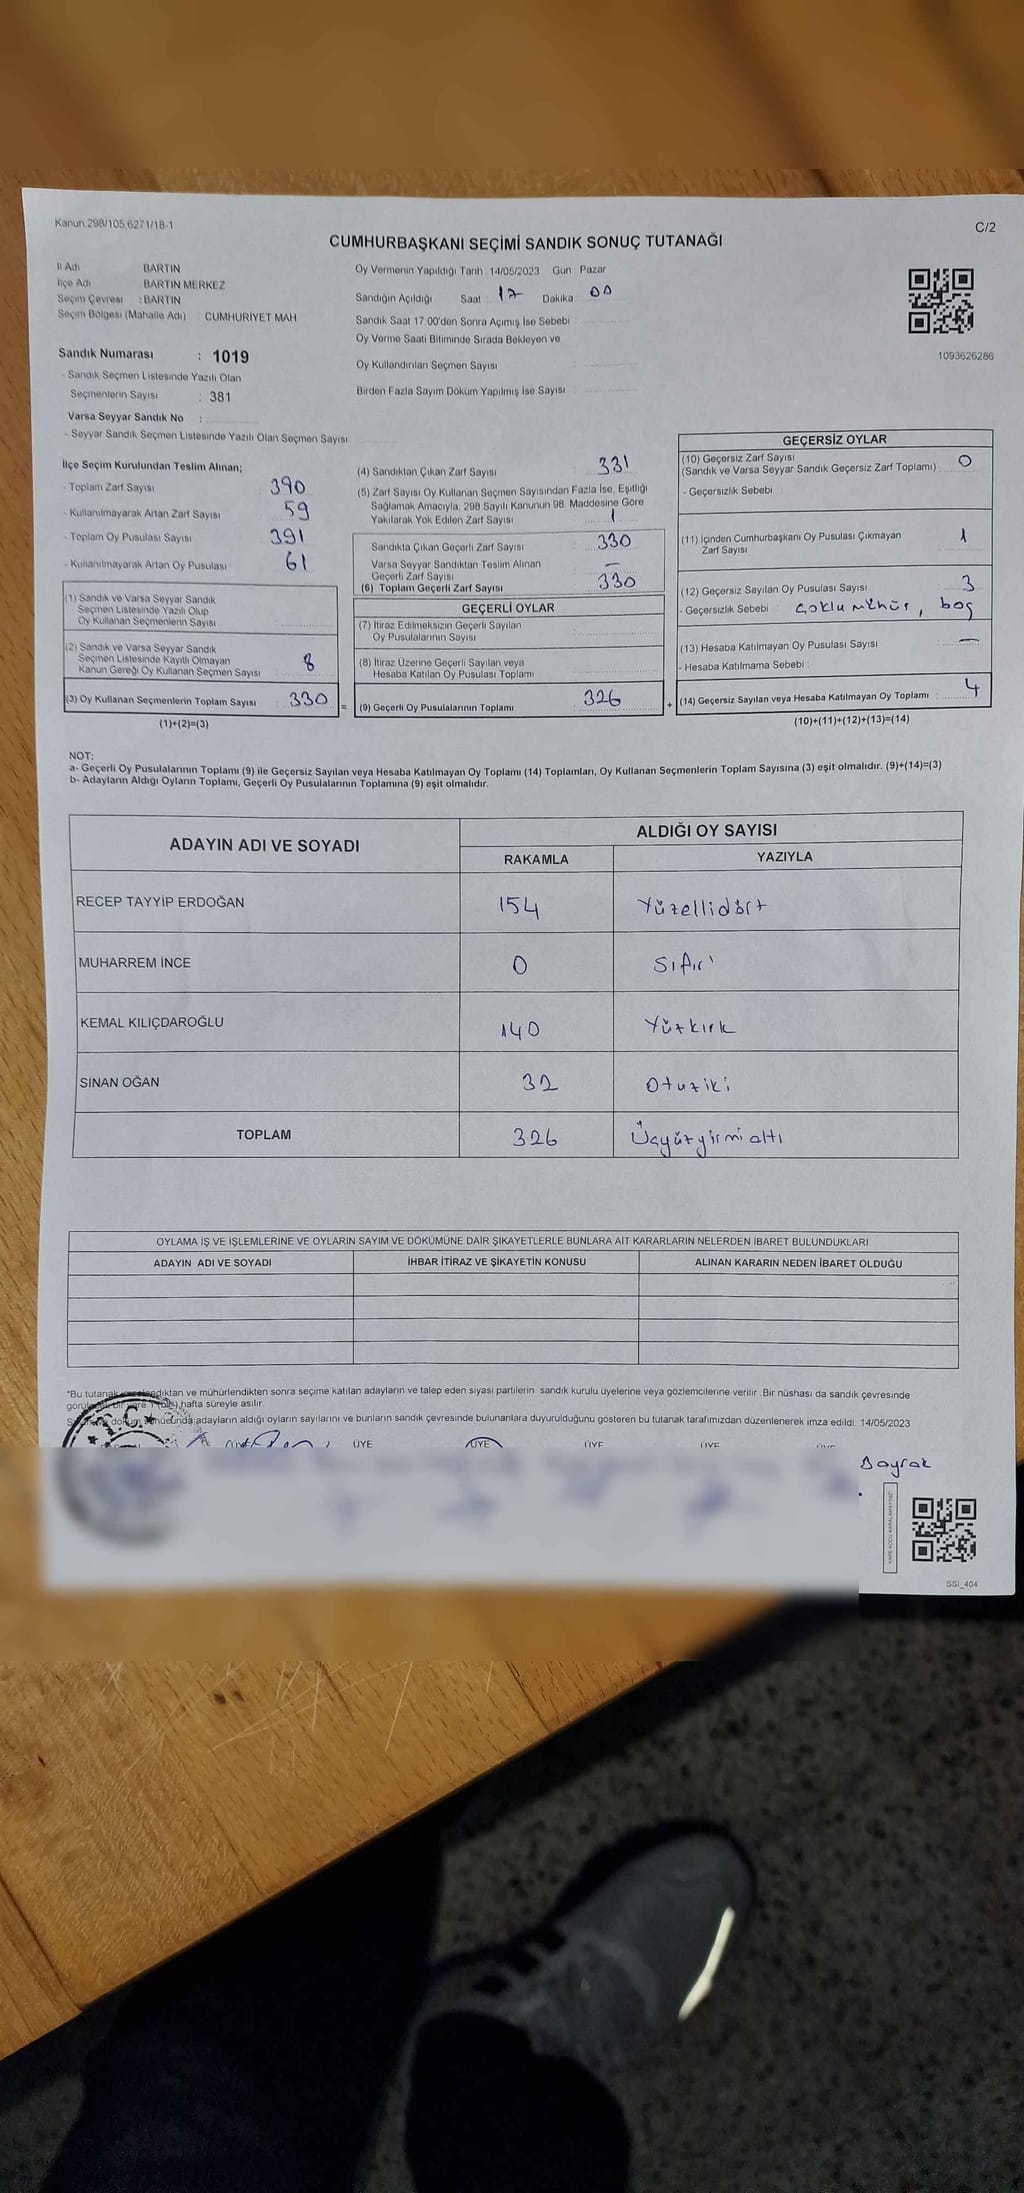 Kanun.298/105,6271/18-1
C/2
CUMHURBAŞKANI SEÇİMİ SANDIK SONUÇ TUTANAĞI
İl Adı BARTIN
İlçe Adı BARTIN MERKEZ
Seçim Çevresi : BARTIN
Seçim Bölgesi (Mahalle Adı) : CUMHURİYET MAH
Sandık Numarası : 1019
- Sandık Seçmen Listesinde Yazılı Olan
Seçmenlerin Sayısı : 381
Varsa Seyyar Sandık No :
- Seyyar Sandık Seçmen Listesinde Yazılı Olan Seçmen Sayısı
Oy Vermenin Yapıldığı Tarih : 14/05/2023 Gün Pazar
Sandığın Açıldığı Saat 17 Dakika 00
Sandık Saat 17:00'den Sonra Açımış İse Sebebi :
Oy Verme Saati Bitiminde Sırada Bekleyen ve
Oy Kullandırılan Seçmen Sayısı
Birden Fazla Sayım Döküm Yapılmış İse Sayısı
1093626286
İlçe Seçim Kurulundan Teslim Alınan;
- Toplam Zarf Sayısı 390
- Kullanılmayarak Artan Zarf Sayısı 59
- Toplam Oy Pusulası Sayısı 391
- Kullanılmayarak Artan Oy Pusulası 61
(1) Sandık ve Varsa Seyyar Sandık
Seçmen Listesinde Yazılı Olup
Oy Kullanan Seçmenlerin Sayısı
(2) Sandık ve Varsa Seyyar Sandık
Seçmen Listesinde Kayıtlı Olmayan
Kanun Gereği Oy Kullanan Seçmen Sayısı 8
(3) Oy Kullanan Seçmenlerin Toplam Sayısı 330 =
(1)+(2)=(3)
(4) Sandıktan Çıkan Zarf Sayısı 331
(5) Zarf Sayısı Oy Kullanan Seçmen Sayısından Fazla İse, Eşitliği
Sağlamak Amacıyla, 298 Sayılı Kanunun 98. Maddesine Göre
Yakılarak Yok Edilen Zarf Sayısı 1
Sandıkta Çıkan Geçerli Zarf Sayısı : 330
Varsa Seyyar Sandıktan Teslim Alınan
Geçerli Zarf Sayısı —
(6) Toplam Geçerli Zarf Sayısı 330
GEÇERLİ OYLAR
(7) İtiraz Edilmeksizin Geçerli Sayılan
Oy Pusulalarının Sayısı
(8) İtiraz Üzerine Geçerli Sayılan veya
Hesaba Katılan Oy Pusulası Toplamı
(9) Geçerli Oy Pusulalarının Toplamı 326 +
GEÇERSİZ OYLAR
(10) Geçersiz Zarf Sayısı
(Sandık ve Varsa Seyyar Sandık Geçersiz Zarf Toplamı) : 0
- Geçersizlik Sebebi :
(11) İçinden Cumhurbaşkanı Oy Pusulası Çıkmayan
Zarf Sayısı 1
(12) Geçersiz Sayılan Oy Pusulası Sayısı 3
- Geçersizlik Sebebi : çoklu mühür, boş
(13) Hesaba Katılmayan Oy Pusulası Sayısı : —
- Hesaba Katılmama Sebebi :
(14) Geçersiz Sayılan veya Hesaba Katılmayan Oy Toplamı : 4
(10)+(11)+(12)+(13)=(14)
NOT:
a- Geçerli Oy Pusulalarının Toplamı (9) ile Geçersiz Sayılan veya Hesaba Katılmayan Oy Toplamı (14) Toplamları, Oy Kullanan Seçmenlerin Toplam Sayısına (3) eşit olmalıdır. (9)+(14)=(3)
b- Adayların Aldığı Oyların Toplamı, Geçerli Oy Pusulalarının Toplamına (9) eşit olmalıdır.
ADAYIN ADI VE SOYADI
ALDIĞI OY SAYISI
RAKAMLA YAZIYLA
RECEP TAYYİP ERDOĞAN 154 Yüzellidört
MUHARREM İNCE 0 Sıfır
KEMAL KILIÇDAROĞLU 140 Yüzkırk
SİNAN OĞAN 32 Otuziki
TOPLAM 326 Üçyüzyirmialtı
OYLAMA İŞ VE İŞLEMLERİNE VE OYLARIN SAYIM VE DÖKÜMÜNE DAİR ŞİKAYETLERLE BUNLARA AİT KARARLARIN NELERDEN İBARET BULUNDUKLARI
ADAYIN ADI VE SOYADI İHBAR İTİRAZ VE ŞİKAYETİN KONUSU ALINAN KARARIN NEDEN İBARET OLDUĞU
*Bu tutanak ve mühürlendikten sonra seçime katılan adayların ve talep eden siyasi partilerin sandık kurulu üyelerine veya gözlemcilerine verilir. Bir nüshası da sandık çevresinde
hafta süreyle asılır.
adayların aldığı oyların sayılarını ve bunların sandık çevresinde bulunanlara duyurulduğunu gösteren bu tutanak tarafımızdan düzenlenerek imza edildi. 14/05/2023
T.C.
ÜYE ÜYE ÜYE ÜYE
Bayrak
KARE KODU KARALAMAYINIZ
SSI_404